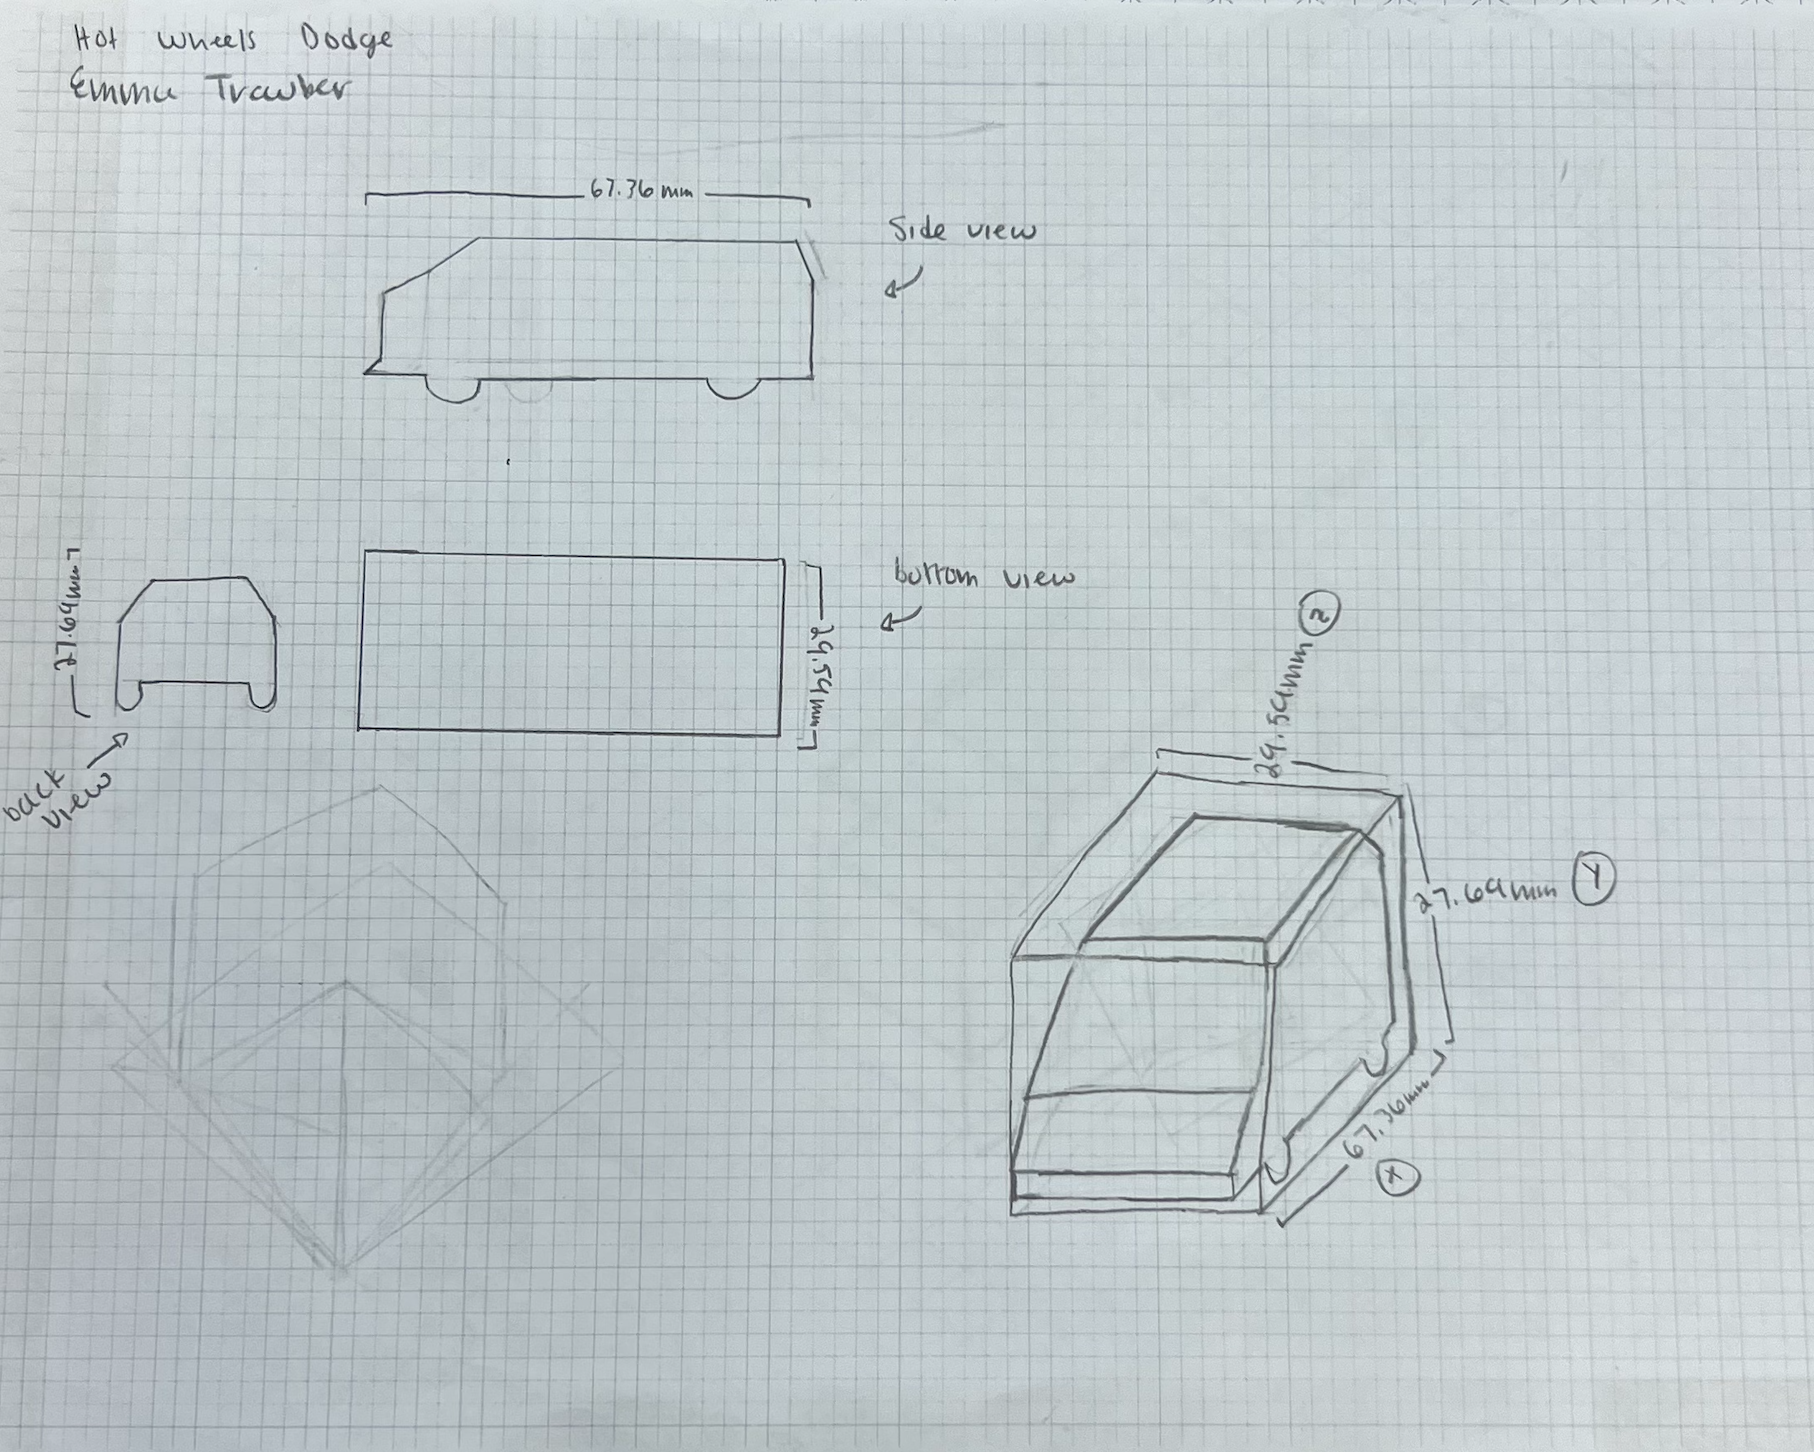 Hot Wheels Dodge
Emma Trawber
67.36mm
Side view
27.69mm
bottom view
29.59mm
back
view
29.59mm Z
27.69mm Y
67.36mm
X